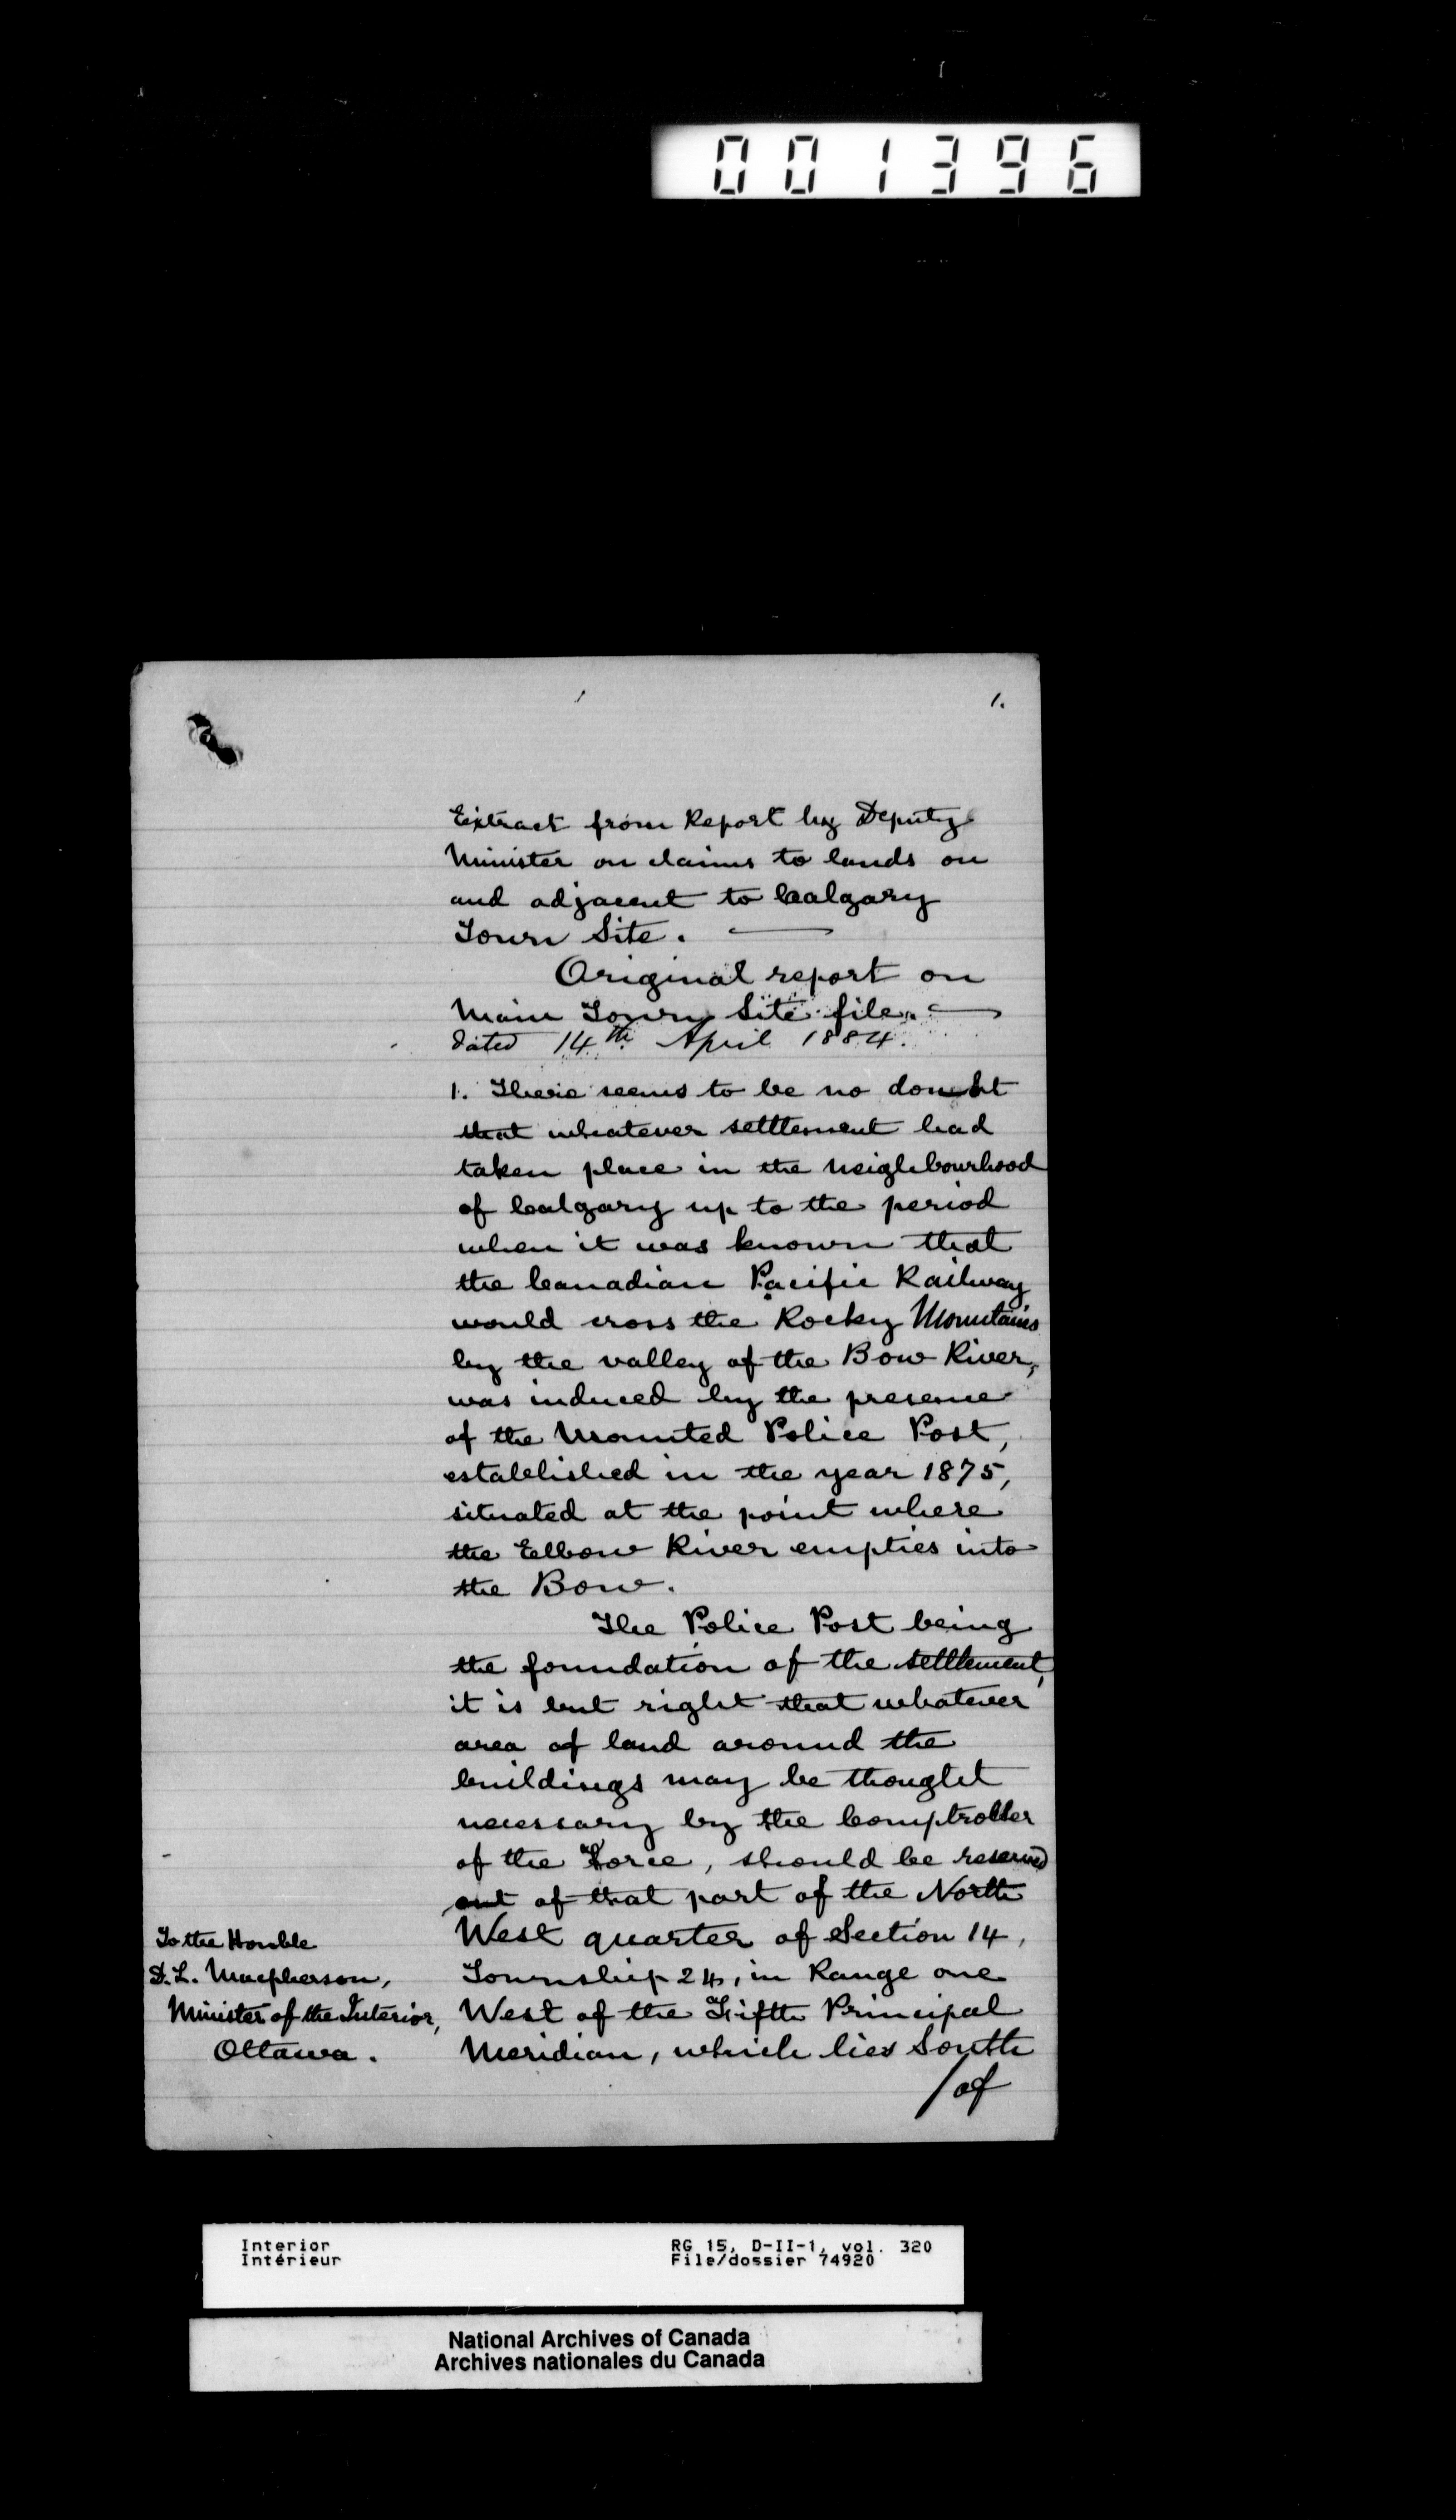 001396
1.
Extract from Report by Deputy
Minister on claims to lands on
and adjacent to Calgary
Town Site.
Original report on
Main Town Site file.
dated 14th April 1884.
1. There seems to be no doubt
that whatever settlement had
taken place in the neighbourhood
of Calgary up to the period
when it was known that
the Canadian Pacific Railway
would cross the Rocky Mountains
by the valley of the Bow River,
was induced by the presence
of the Mounted Police Post,
established in the year 1875,
situated at the point where
the Elbow River empties into
the Bow.
The Police Post being
the foundation of the settlement,
it is but right that whatever
area of land around the
buildings may be thought
necessary by the Comptroller
of the Force, should be reserved
out of that part of the North
West quarter of Section 14,
Township 24, in Range one
West of the Fifth Principal
Meridian, which lies South
/of
To the Honble
D. L. Macpherson,
Minister of the Interior,
Ottawa.
Interior
Intérieur
RG 15, D-II-1, vol. 320
File/dossier 74920
National Archives of Canada
Archives nationales du Canada